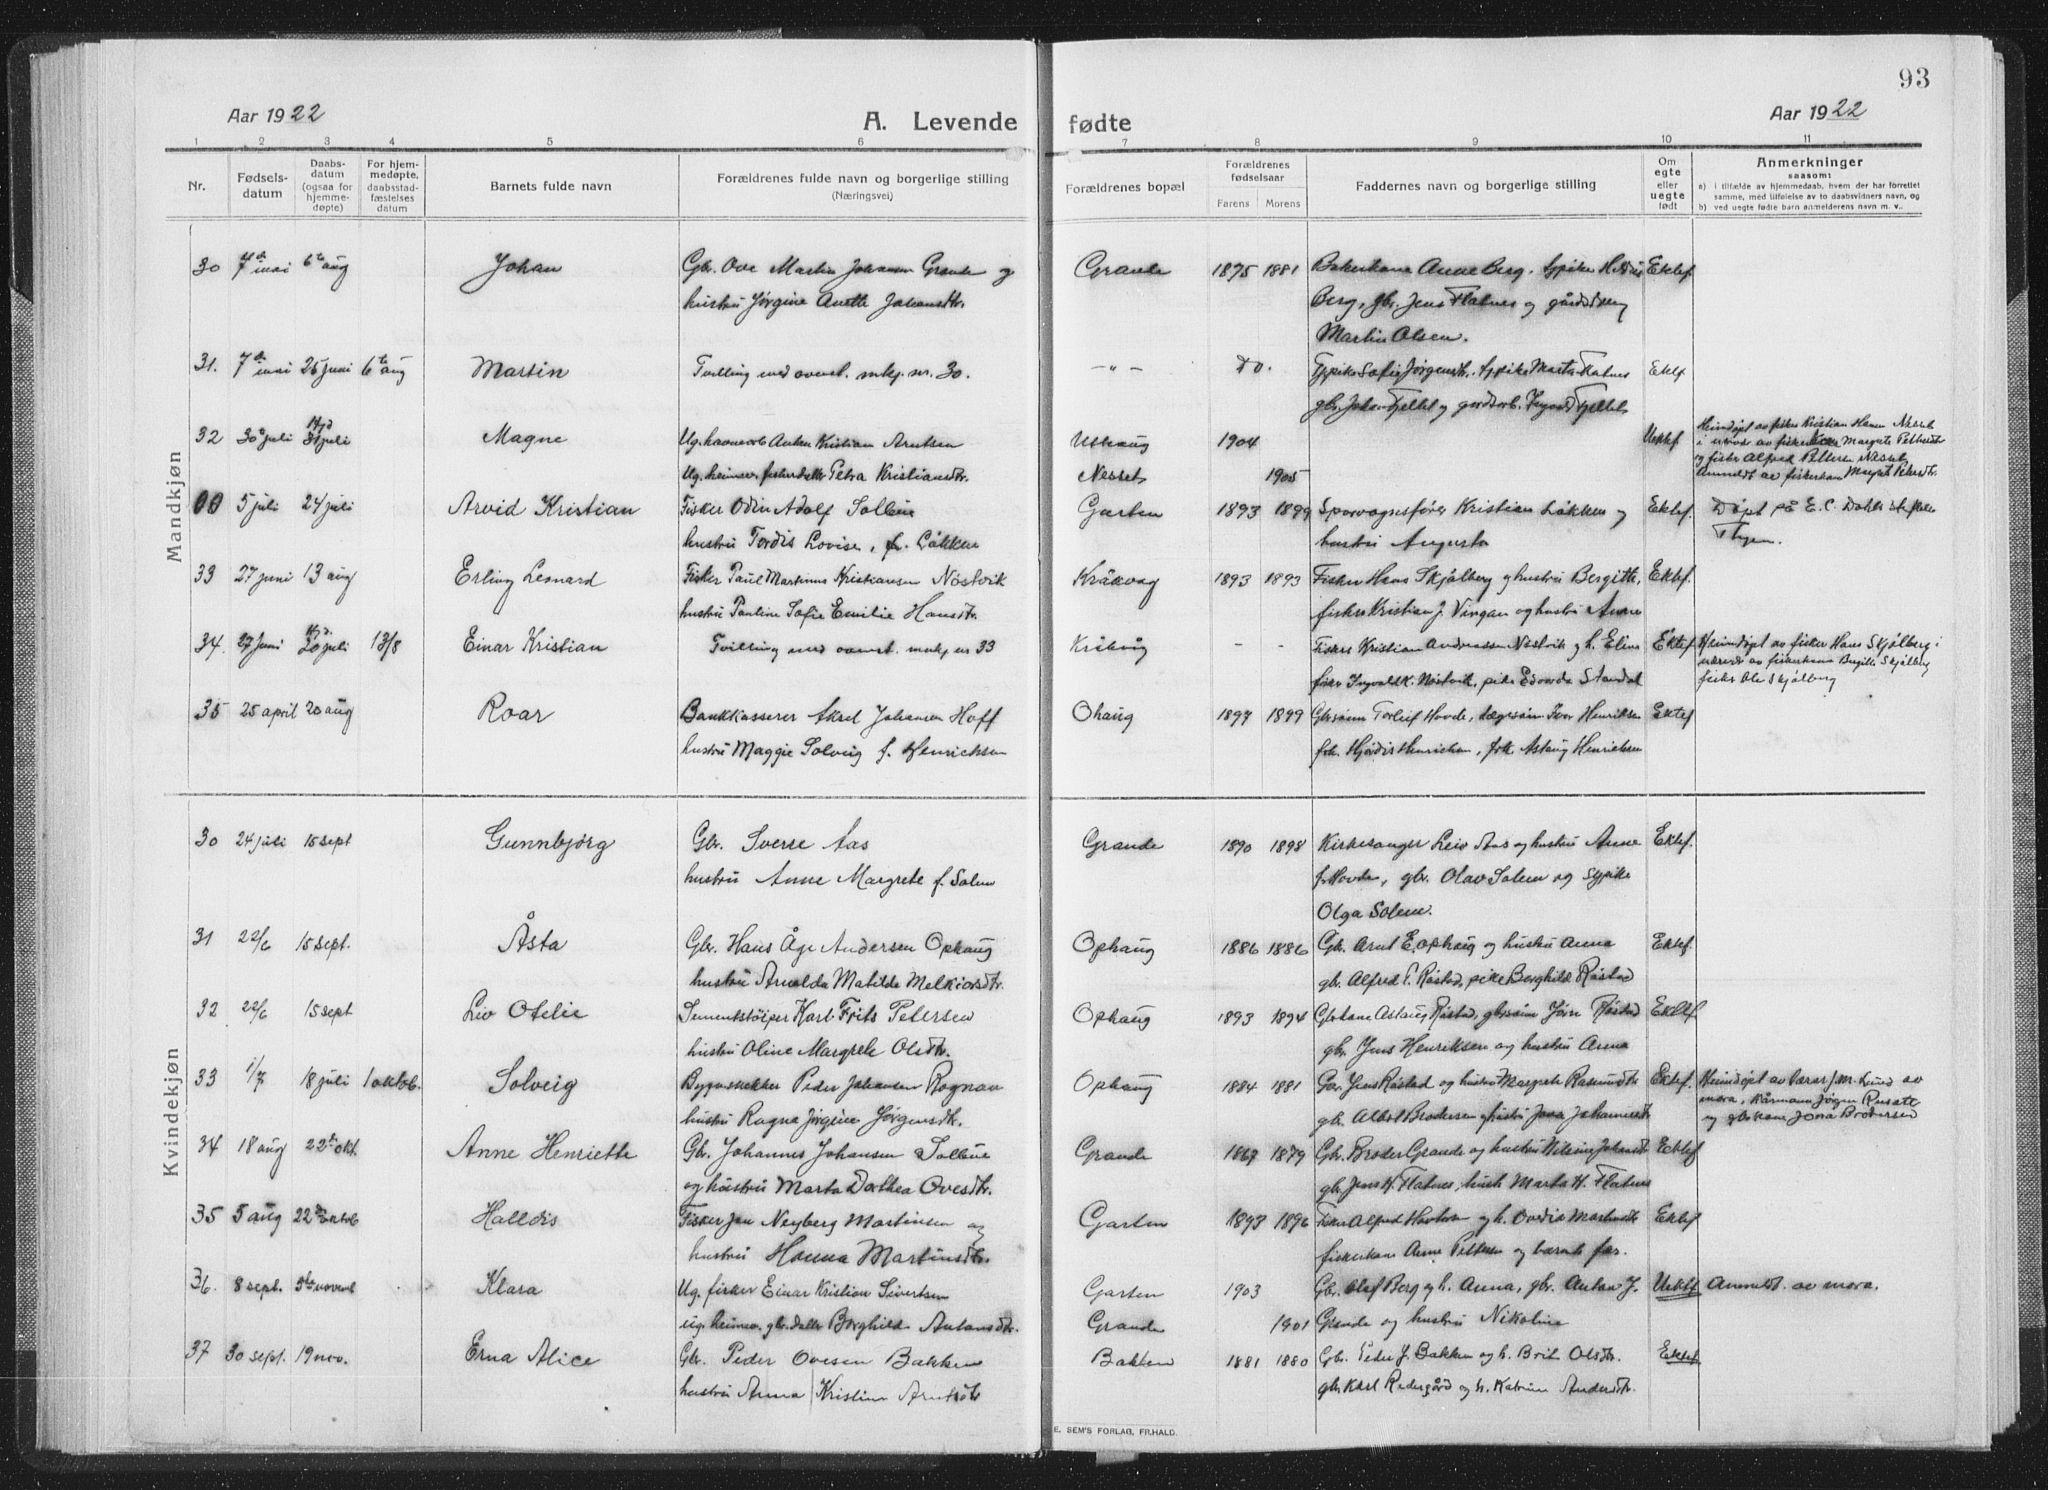 93
Aar 1922
A. Levende fødte
Aar 1922
1 2 3 4 5 6 7 8 9 10 11
Nr.
Fødsels-
datum
Daabs-
datum
(ogsaa for
hjemme-
døpte)
For hjem-
medøpte,
daabsstad-
fæstelses
datum
Barnets fulde navn
Forældrenes fulde navn og borgerlige stilling
(Næringsvei)
Forældrenes bopæl
Forældrenes
fødselsaar
Farens Morens
Faddernes navn og borgerlige stilling
Om
egte
eller
uegte
født
Anmerkninger
saasom:
a) i tilfælde av hjemmedaab, hvem der har forrettet
samme, med tilføielse av to daabsvidners navn, og
b) ved uegte fødte barn anmelderens navn m. v..
Mandkjøn
30 7de mai 6te aug Johan Gbr. Ove Martin Johansen Grande og Grande 1895 1881 Bakerkone Anne Berg, Ektef
hustru Jørgine Anette Johansdtr. Berg, gbr. Jens Flatnes og
Martin Olsen.
31. 7de mai 25 juni 6te aug Martin Tvilling med ovenst. mkj. nr. 30. - " - Do. Sypike Sofie Jørgensdtr. sypike Marta Flatnes Ektf
gbr. Johan Fjeltet og gardarb. Ingvard Fjeltet
32 30 juli Hjd 31 juli Magne Ug. havnearb Anton Kristian Arntsen Uthaug 1904 Uektef Heimdøpt av fisker Kristian Hansen Nesset
i nærvær av fiskerkone Margrete Pettersdtr
og fisker Alfred Pettersen Nesset
Ug. heimev. fiskerdatter Petra Kristiansdtr. Nesset 1905 Anmeldt av fiskerkone Margret Petersdtr.
00 5 juli 24 juli Arvid Kristian Fisker Odin Adolf Solberg Garten 1893 1899 Sporvognsfører Kristian Løkken og Ektef. Døpt på E. C. Dahls stiftelse
hustru Tordis Lovise, f. Løkken hustru Augusta
33 27 juni 13 aug Erling Leonard Fisker Paul Martinus Kristiansen Nøstvik Kråkvag 1893 1893 Fisker Hans Skjølberg og hustru Bergitte, Ektef.
hustru Pauline Sofie Emilie Hansdtr. fisker Kristian J. Vingan og hustru Anne
34. 27 juni Hjd. 20 juli 13/8 Einar Kristian Tvilling med ovenst. mnkj nr 33 Kråkvåg - - Fisker Kristian Andreassen Nøstvik og h. Eline Ektef Heimdøpt av fisker Hans Skjølberg i
nærvær av fiskerkone Bergitte Skjølberg
fisker Ingvald K. Nøstvik, pike Edvarda Standal fisker Ole Skjølberg
35 25 april 20 aug Roar Bankkasserer Aksel Johansen Hoff Ohaug 1897 1899 Gbrsønn Torleif Hovde, lægesøn Ivar Henriksen Ektef
hustru Maggie Solveig f. Henrichsen frk. Hjørdis Henrichsen, frk. Astaug Henrichsen
Kvindekjøn
30 24 juli 15 sept Gunnbjørg Gbr. Sverre Aas Grande 1890 1898 Kirkesanger Leiv Aas og hustru Anne Ektef.
hustru Anne Margrete f. Solem f. Hovde, gbr. Olav Solem og sypike
Olga Solem.
31 22/6 15 sept. Åsta Gbr. Hans Åge Andersen Ophaug Ophaug 1886 1886 Gbr. Arnt E. Ophaug og hustru Anna Ektef.
hustru Arnolda Matilde Melkiorsdtr. gbr. Alfred P. Røstad, pike Borghild Røstad
32 22/6 15 sept Liv Ofelie Sementstøiper Karl Frits Petersen Ophaug 1893 1894 Gbrkone Astaug Røstad, gbrsønn Jørn Røstad Ektef
hustru Oline Margrete Olsdtr. gbr. Jens Henriksen og hustru Anna
33 1/7 18 juli 1 oktob. Solveig Bygnsnekker Peder Johansen Rognan Ophaug 1884 1881 Gbr. Jens Røstad og hustru Margrete Rasmusdtr Ektef. Heimdøpt av Lærar J. M. Lund av
mora, kårmann Jørgen Russett
hustru Ragna Jørgine Jørgensdtr. gbr. Albert Brodersen og hustru Jona Johannesdtr og gbrkone Jona Brodersen
34 18 aug 22de okt. Anne Henriette Gbr. Johannes Johansen Solberg Grande 1867 1879 Gbr. Broder Grande og hustru Nilsine Johansdtr Ektef
og hustru Marta Dorthea Ovesdtr. gbr. Jens H. Flatnes, hustr. Marta H. Flatnes
35 5 aug 22de oktob Halldis Fisker Jan Neyberg Martinsen og Garten 1893 1896 Fisker Alfred Hovland og h. Ovedia Martinsdtr Ektef
hustru Hanna Martinsdtr. fiskerkone Anne Pettersen og barnets far.
36. 8 sept. 5te novemb Klara Ug. fisker Einar Kristian Sivertsen Garten 1903 Gbr. Olef Berg og h. Anna, gbr. Anton J. Uektef Anmeldt av mora.
ug. heimev. gbr.datter Borghild Antonsdtr. Grande 1901 Grande og hustru Nikoline
37 30 sept. 19 nov. Erna Alice Gbr. Peder Ovesen Bakken Bakken 1881 1880 Gbr. Peder J. Bakken og h. Brit Olsdtr. Ektef
hustru Anna Kristine Arntsdtr gbr Karl Redergård og h. Katrine Andersdtr.
E. SEM'S FORLAG, FR.HALD.